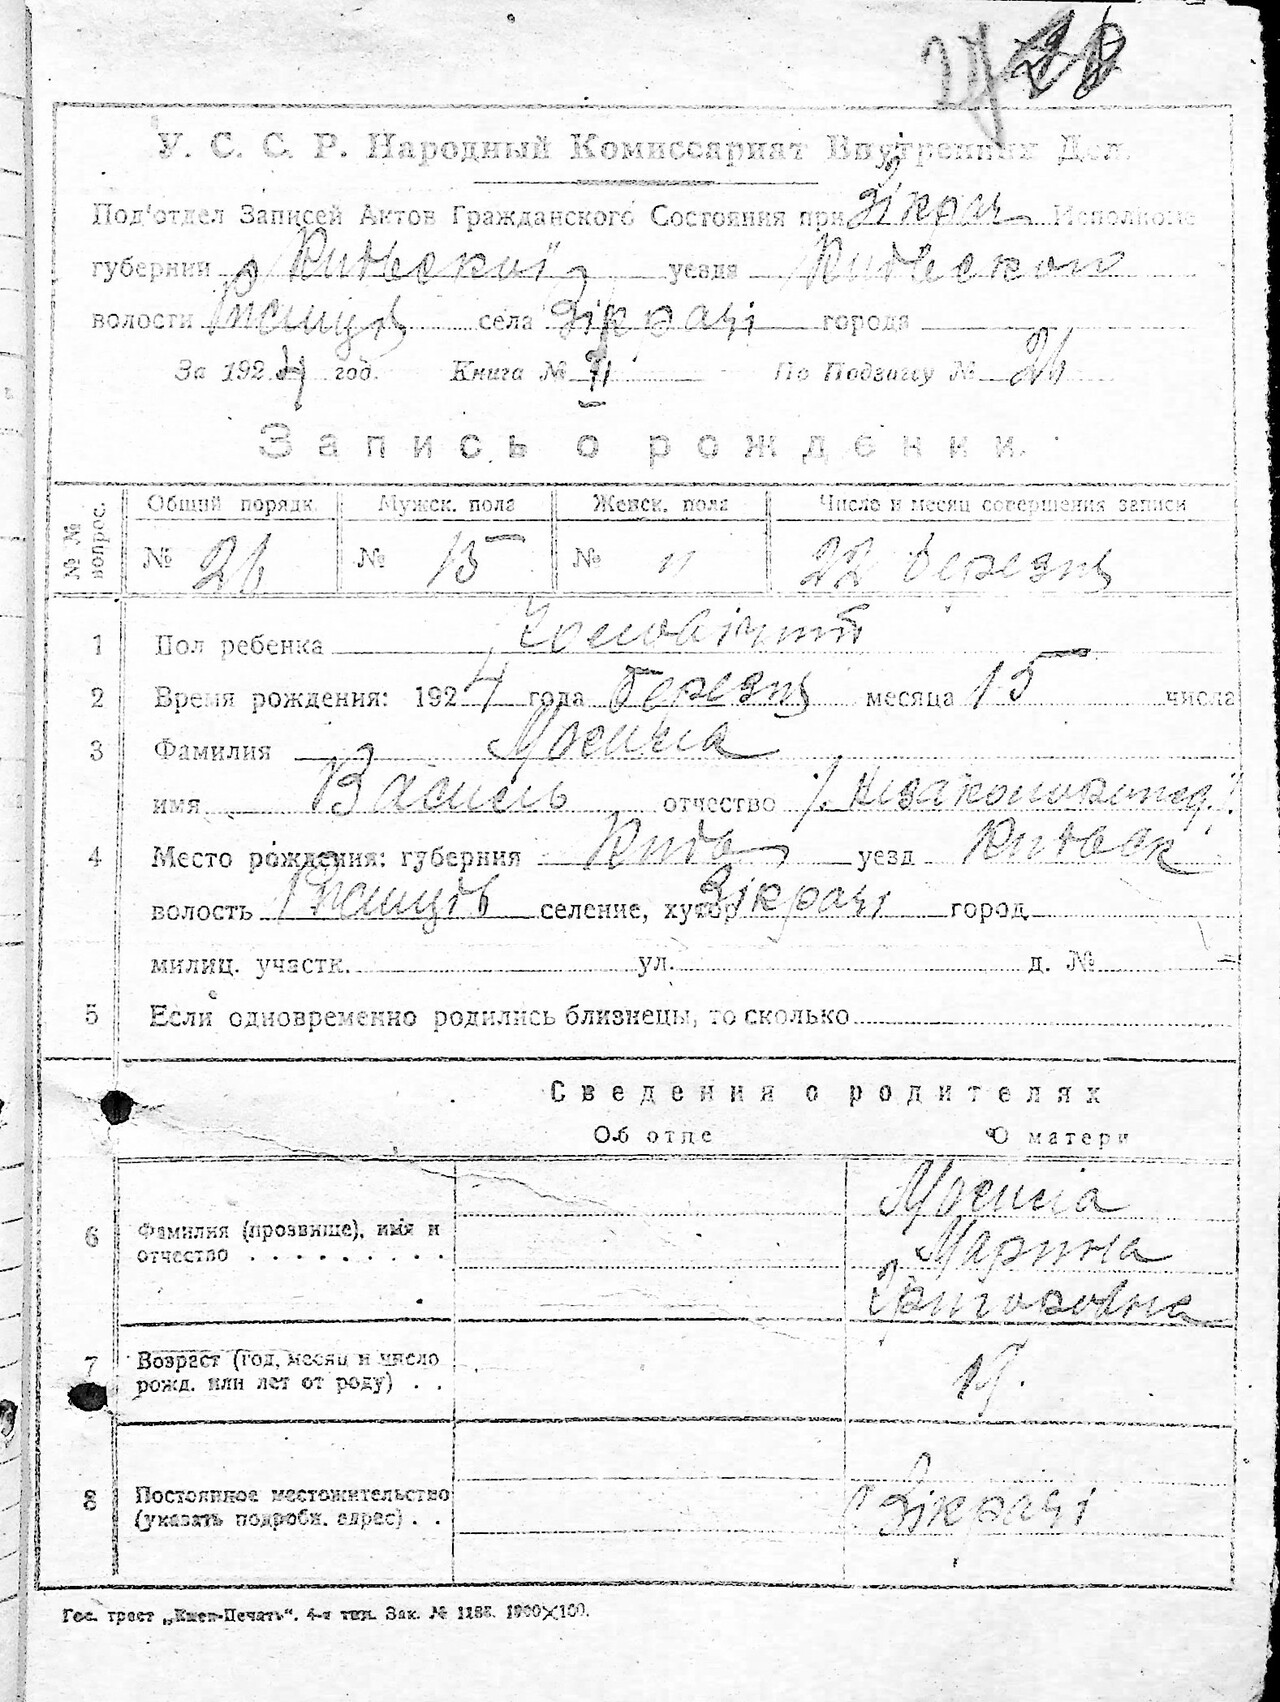 27 28
У. С. С. Р. Народный Комиссариат Внутренних Дел.
Под'отдел Записей Актов Гражданского Состояния при Зікрач. Исполкоме
губернии Київської уезда Київском
волости Ржищів села Зікрачі города
За 1924 год. Книга № По Подзапису № 26
Запись о рождении.
№ № вопрос. Общий порядк. Мужск. пола Женск. пола Число и месяц совершения записи
№ 26 № 15 № " 22 березня
1 Пол ребенка Чоловічий
2 Время рождения: 1924 года березня месяца 15 числа
3 Фамилия
имя Василь отчество
4 Место рождения: губерния Київ уезд Київськ
волость Ржищів селение, хутор Зікрачі город
милиц. участк. ул. д. №
5 Если одновременно родились близнецы, то сколько
Сведения о родителях
Об отце О матери
6 Фамилия (прозвище), имя и
отчество . . . . . . . . .
Марина
Григоровна
7 Возраст (год, месяц и число
рожд. или лет от роду) . . 19.
8 Постоянное местожительство
(указать подробн. адрес) . . с Зікрачі
Гос. трест „Киев-Печать“. 4-я тип. Зак. № 1188. 1900×100.